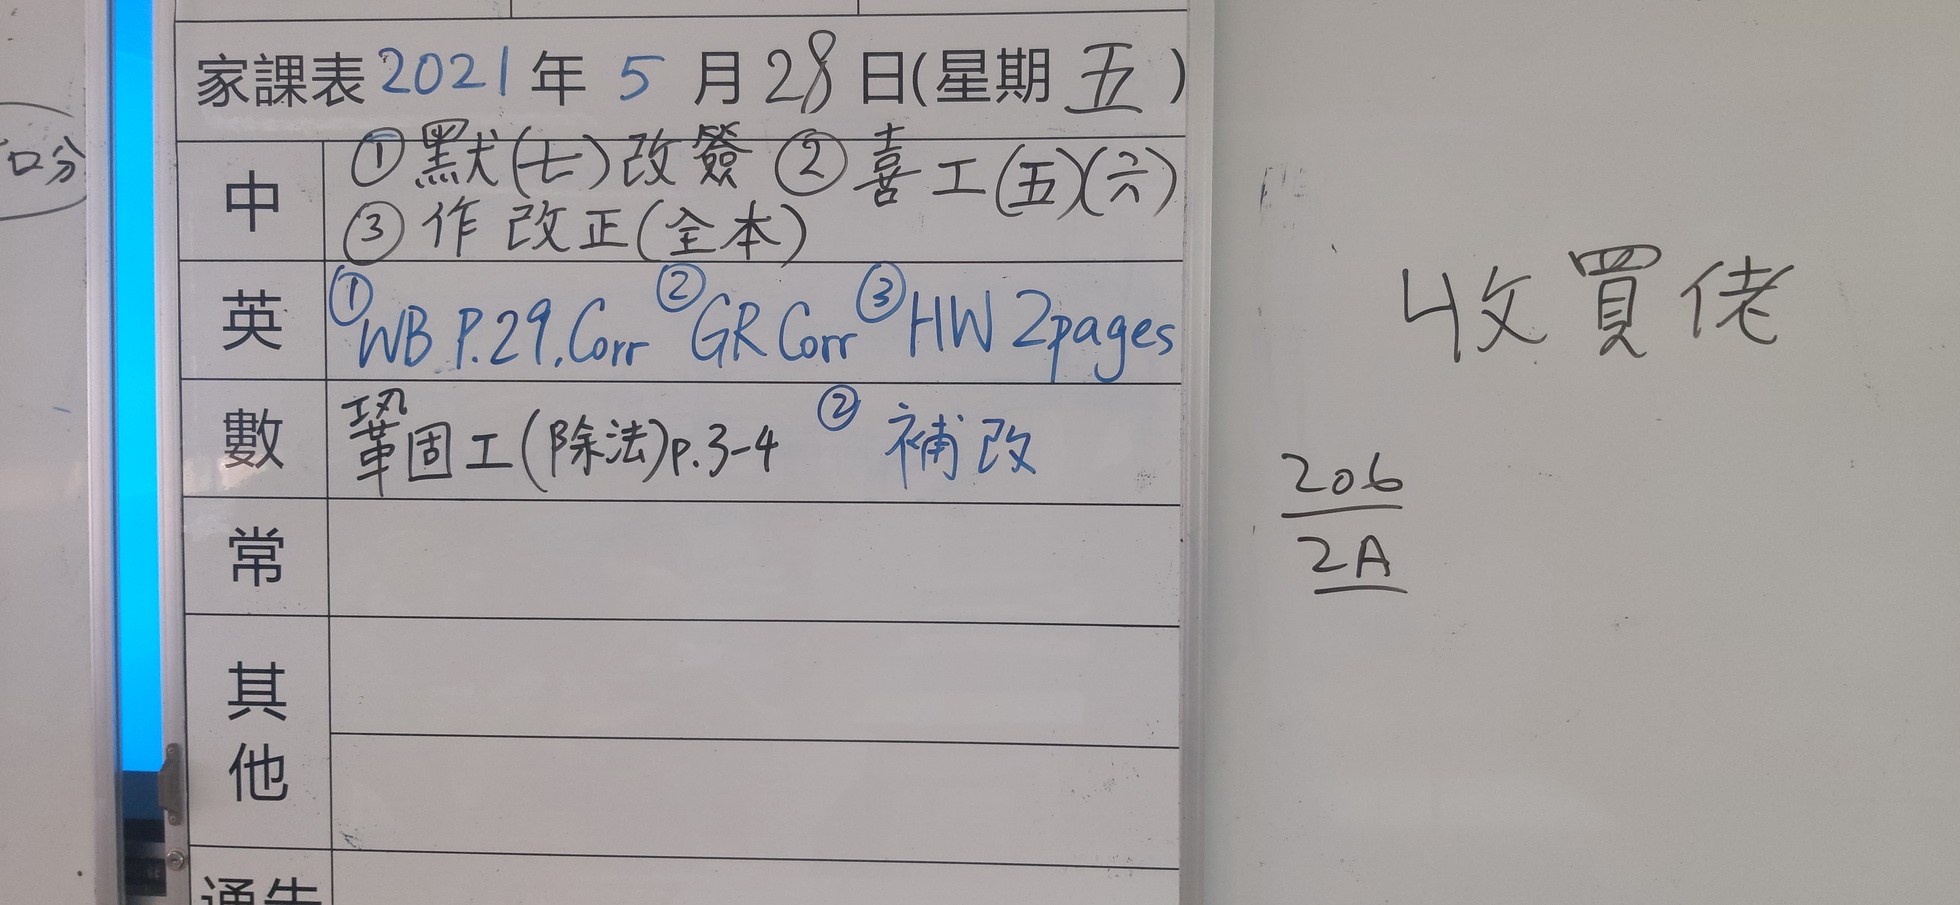 家課表2021年5月28日(星期五)
中
①默(七)改簽②喜工(五)(六)
③作改正(全本)
英
①WB P.29.Corr ②GR Corr ③HW 2pages
數
鞏固工(除法)p.3-4 ②補改
常
其他
通告
口分
收買佬
206
2A